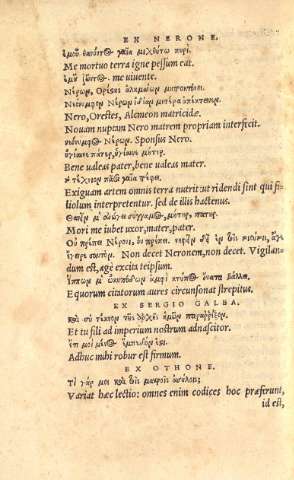 EX NERONE.
ἐμοῦ θανόντος γαῖα μιχθήτω πυρί.
Me mortuo terra igne pessum eat.
ἐμοῦ ζῶντος. me viuente.
Νέρων, Ορέστης
Nero, Orestes, Alcmeon matricidæ.
Νέρων ἰδίαν μητέρα ἀπέκτεινεν.
Nouam nuptam Nero matrem propriam interficit.
Νέρων. Sponsus Nero.
ὑγίαινε πάτερ, ὑγίαινε μῆτερ.
Bene valeas pater, bene valeas mater.
τέχνιον πᾶσα γαῖα τρέφει.
Exiguam artem omnis terra nutrit: vt ridendi sint qui fi-
liolum interpretentur. sed de illis hactenus.
Θανεῖν μ' ἄνωγε σύγγαμος, μήτηρ, πατήρ.
Mori me iubet vxor, mater, pater.
Οὐ πρέπει Νέρωνι, οὐ πρέπει. νήφειν δεῖ ἐν τοῖς τοιούτοις, ἄγε
ἔγειρε σεαυτόν. Non decet Neronem, non decet. Vigilan-
dum est, age excita teipsum.
ἵππων μ' ὠκυπόδων ἀμφὶ κτύπος οὔατα βάλλει.
Equorum citatorum aures circunsonat strepitus.
EX SERGIO GALBA.
καὶ σὺ τέκνον τῆς ἀρχῆς ἡμῶν
Et tu fili ad imperium nostrum adnascitor.
ἔτι μοι μένος ἔμπεδόν ἐστι.
Adhuc mihi robur est firmum.
EX OTHONE.
Τί γάρ μοι καὶ τοῖς μακροῖς αὐλοῖς;
Variat hæc lectio: omnes enim codices hoc præferunt,
id est,